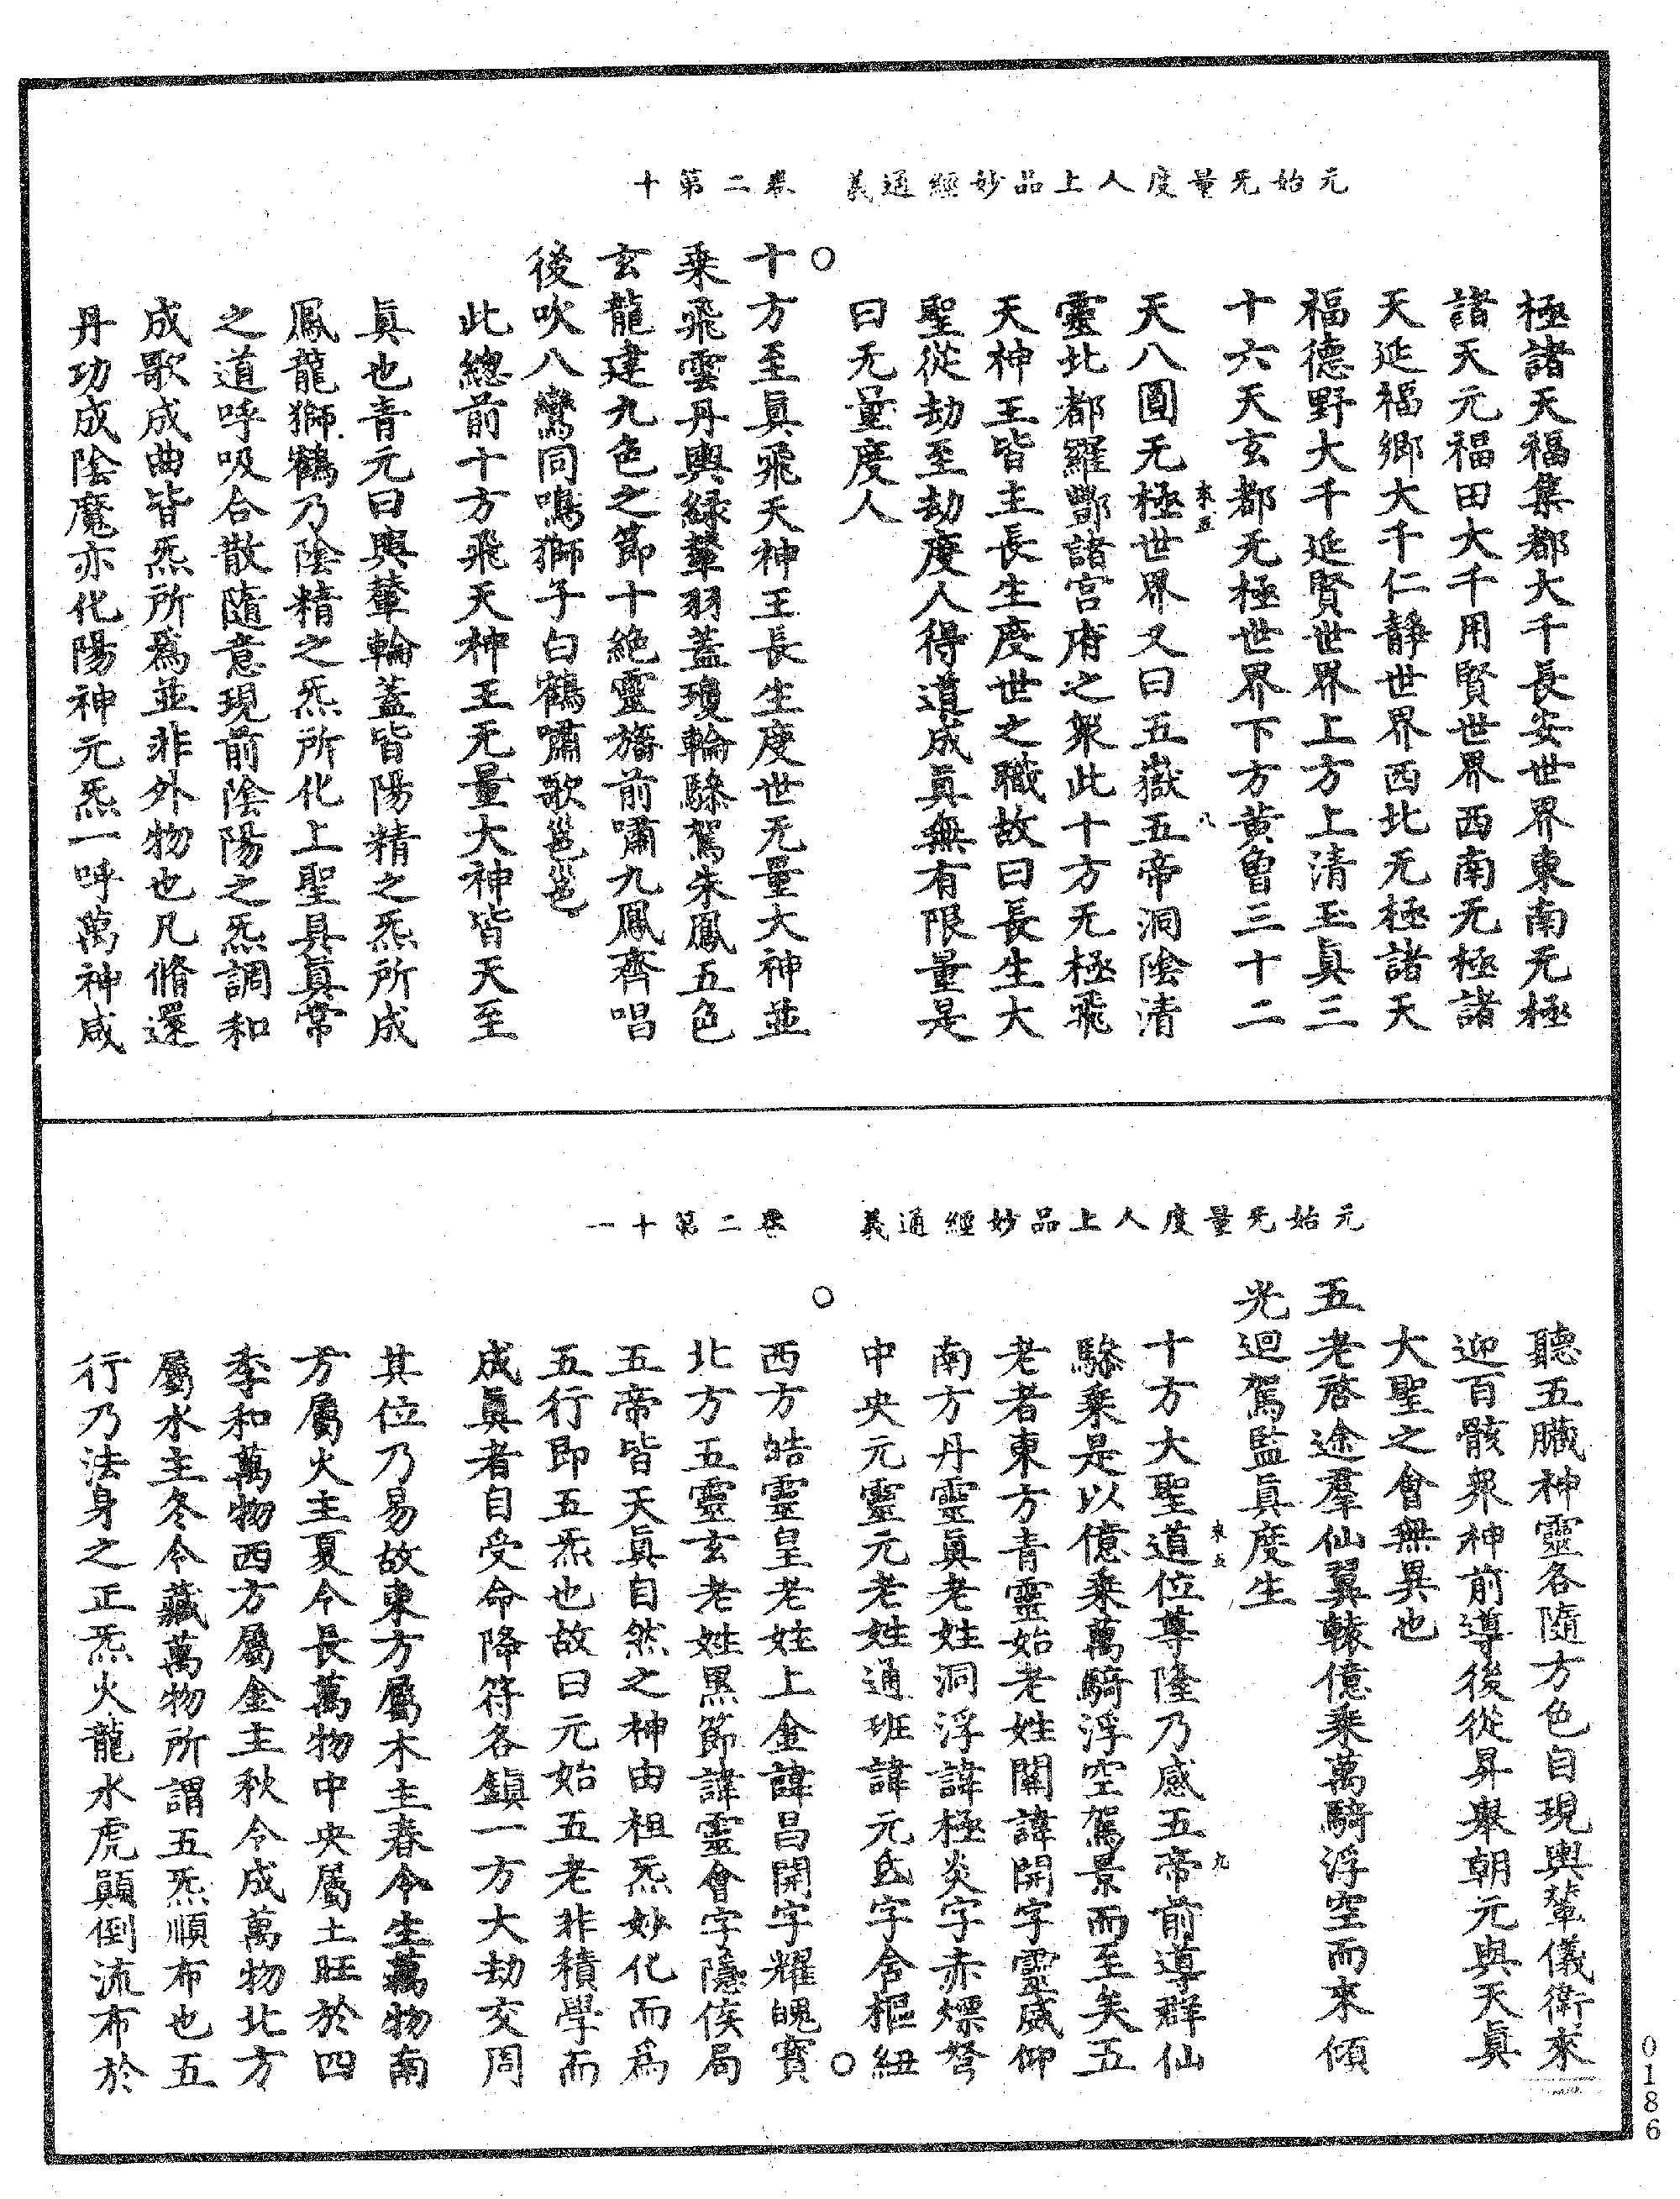 元始无量度人上品妙經通義　卷二第十
極諸天福集都大千長安世界東南无極
諸天元福田大千用賢世界西南无極諸
天延福鄉大千仁靜世界西北无極諸天
福德野大千延賢世界上方上清玉眞三
十六天玄都无極世界下方黄曾三十二
來五　八
天八圓无極世界又曰五嶽五帝洞陰清
靈北都羅酆諸宮府之衆此十方无極飛
天神王皆主長生度世之職故曰長生大
聖從劫至劫度人得道成眞無有限量是
曰无量度人
○
十方至眞飛天神王長生度世无量大神並
乘飛雲丹輿緑輦羽蓋瓊輪驂駕朱鳳五色
玄龍建九色之節十絶靈旛前嘯九鳳齊唱
後吹八鸞同鳴獅子白鶴嘯歌邕邕
此總前十方飛天神王无量大神皆天至
眞也青元曰輿輦輪蓋皆陽精之炁所成
鳳龍獅鶴乃陰精之炁所化上聖具眞常
之道呼吸合散隨意現前陰陽之炁調和
成歌成曲皆炁所爲並非外物也凡脩還
丹功成陰魔亦化陽神元炁一呼萬神咸
元始无量度人上品妙經通義　卷二第十一
聽五臟神靈各隨方色自現輿輦儀衛來
迎百骸衆神前導後從昇舉朝元與天眞
大聖之會無異也
五老啓途羣仙翼轅億乘萬騎浮空而來傾
光迴駕監眞度生
來五　九
十方大聖道位尊隆乃感五帝前導群仙
驂乘是以億乘萬騎浮空駕景而至矣五
老者東方青靈始老姓閶諱開字靈威仰
南方丹靈眞老姓洞浮諱極炎字赤熛弩
中央元靈元老姓通班諱元氐字含樞紐
○
西方皓靈皇老姓上金諱昌開字耀魄寶
○
北方五靈玄老姓黒節諱靈會字隱侯局
五帝皆天眞自然之神由祖炁妙化而爲
五行即五炁也故曰元始五老非積學而
成眞者自受命降符各鎮一方大劫交周
其位乃易故東方屬木主春令生萬物南
方屬火主夏令長萬物中央屬土旺於四
季和萬物西方屬金主秋令成萬物北方
屬水主冬令藏萬物所謂五炁順布也五
行乃法身之正炁火龍水虎顚倒流布於
0186